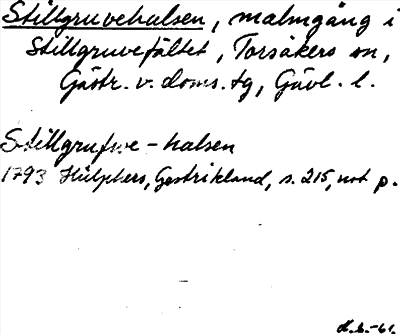 Stillgruvehalsen, malmgång i
Stillgruvefältet, Torsåkers sn,
Gästr. v. doms. tg, Gävl. l.
Stillgrufwe-halsen
1793 Hülphers, Gestrikland, s. 215, not p.